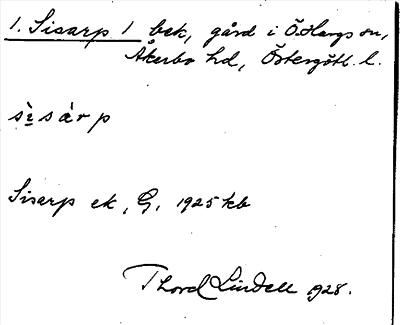 1. Sisarp 1 bek, gård i Ö. Hargs sn,
Åkerbo hd, Östergötl. l.
sìsàrp
Sisarp ek, G, 1925 kb
Thord Lindell 1928.